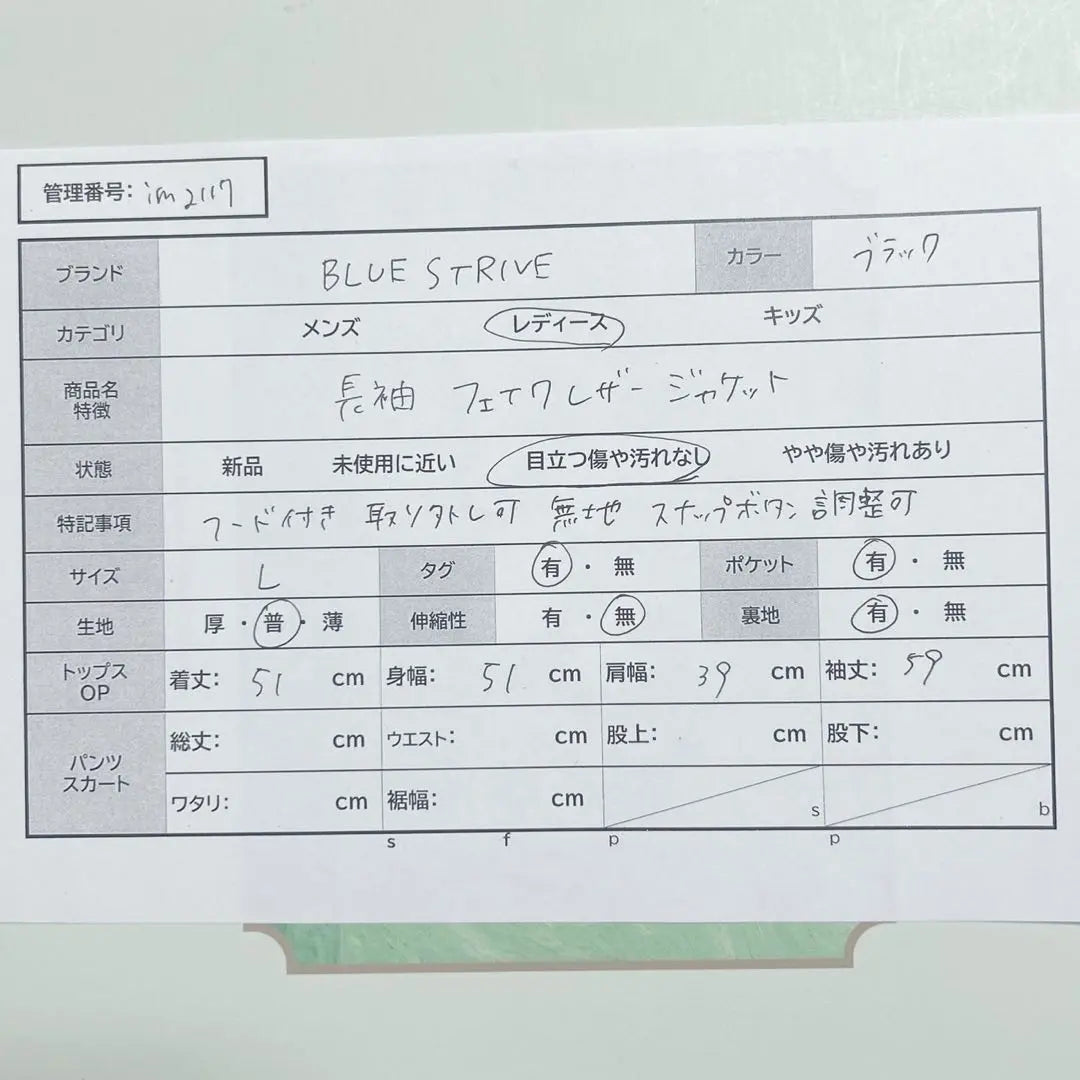 管理番号: im2117
ブランド BLUE STRIVE カラー ブラック
カテゴリ メンズ レディース キッズ
商品名 特徴 長袖 フェイクレザージャケット
状態 新品 未使用に近い 目立つ傷や汚れなし やや傷や汚れあり
特記事項 フード付き 取り外し可 無地 スナップボタン調整可
サイズ L タグ 有・無 ポケット 有・無
生地 厚・普・薄 伸縮性 有・無 裏地 有・無
トップス OP 着丈: 51 cm 身幅: 51 cm 肩幅: 39 cm 袖丈: 59 cm
パンツ スカート 総丈: cm ウエスト: cm 股上: cm 股下: cm
ワタリ: cm 裾幅: cm s b
s f p p